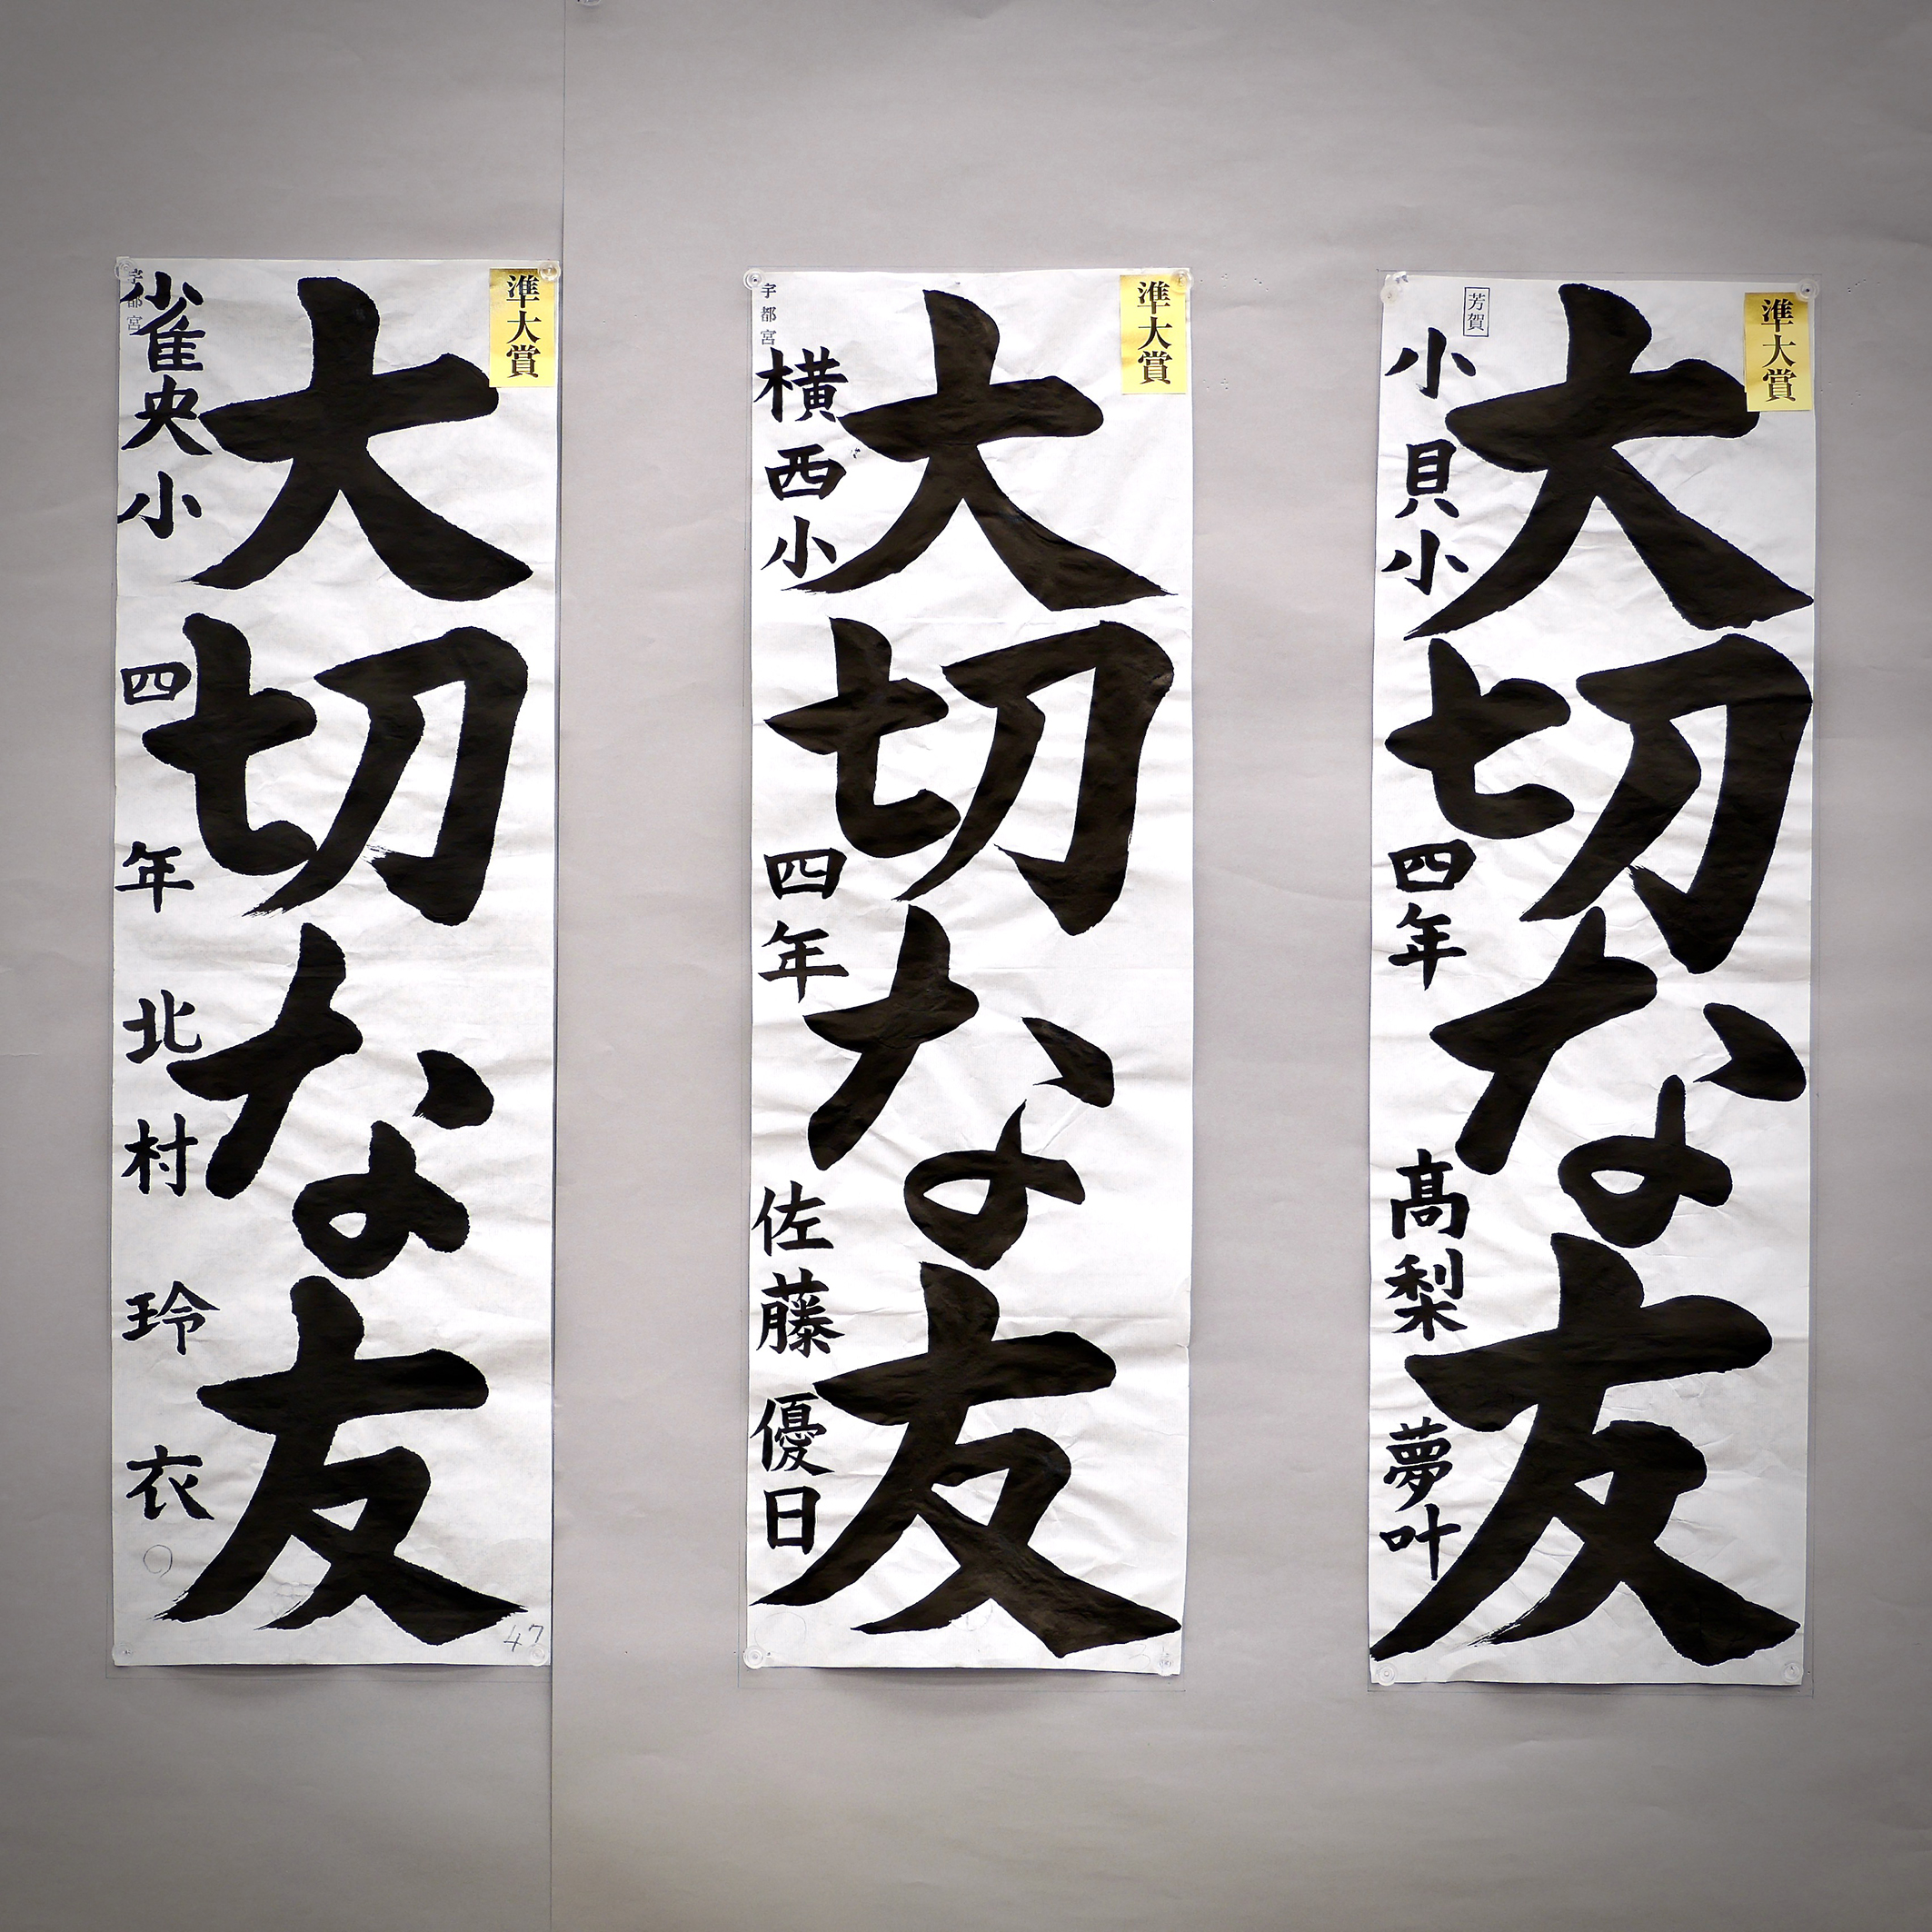 準大賞
大切な友
宇都宮
雀央小 四年 北村玲衣
47
準大賞
大切な友
宇都宮
横西小 四年 佐藤優日
準大賞
大切な友
芳賀
小貝小 四年 髙梨夢叶